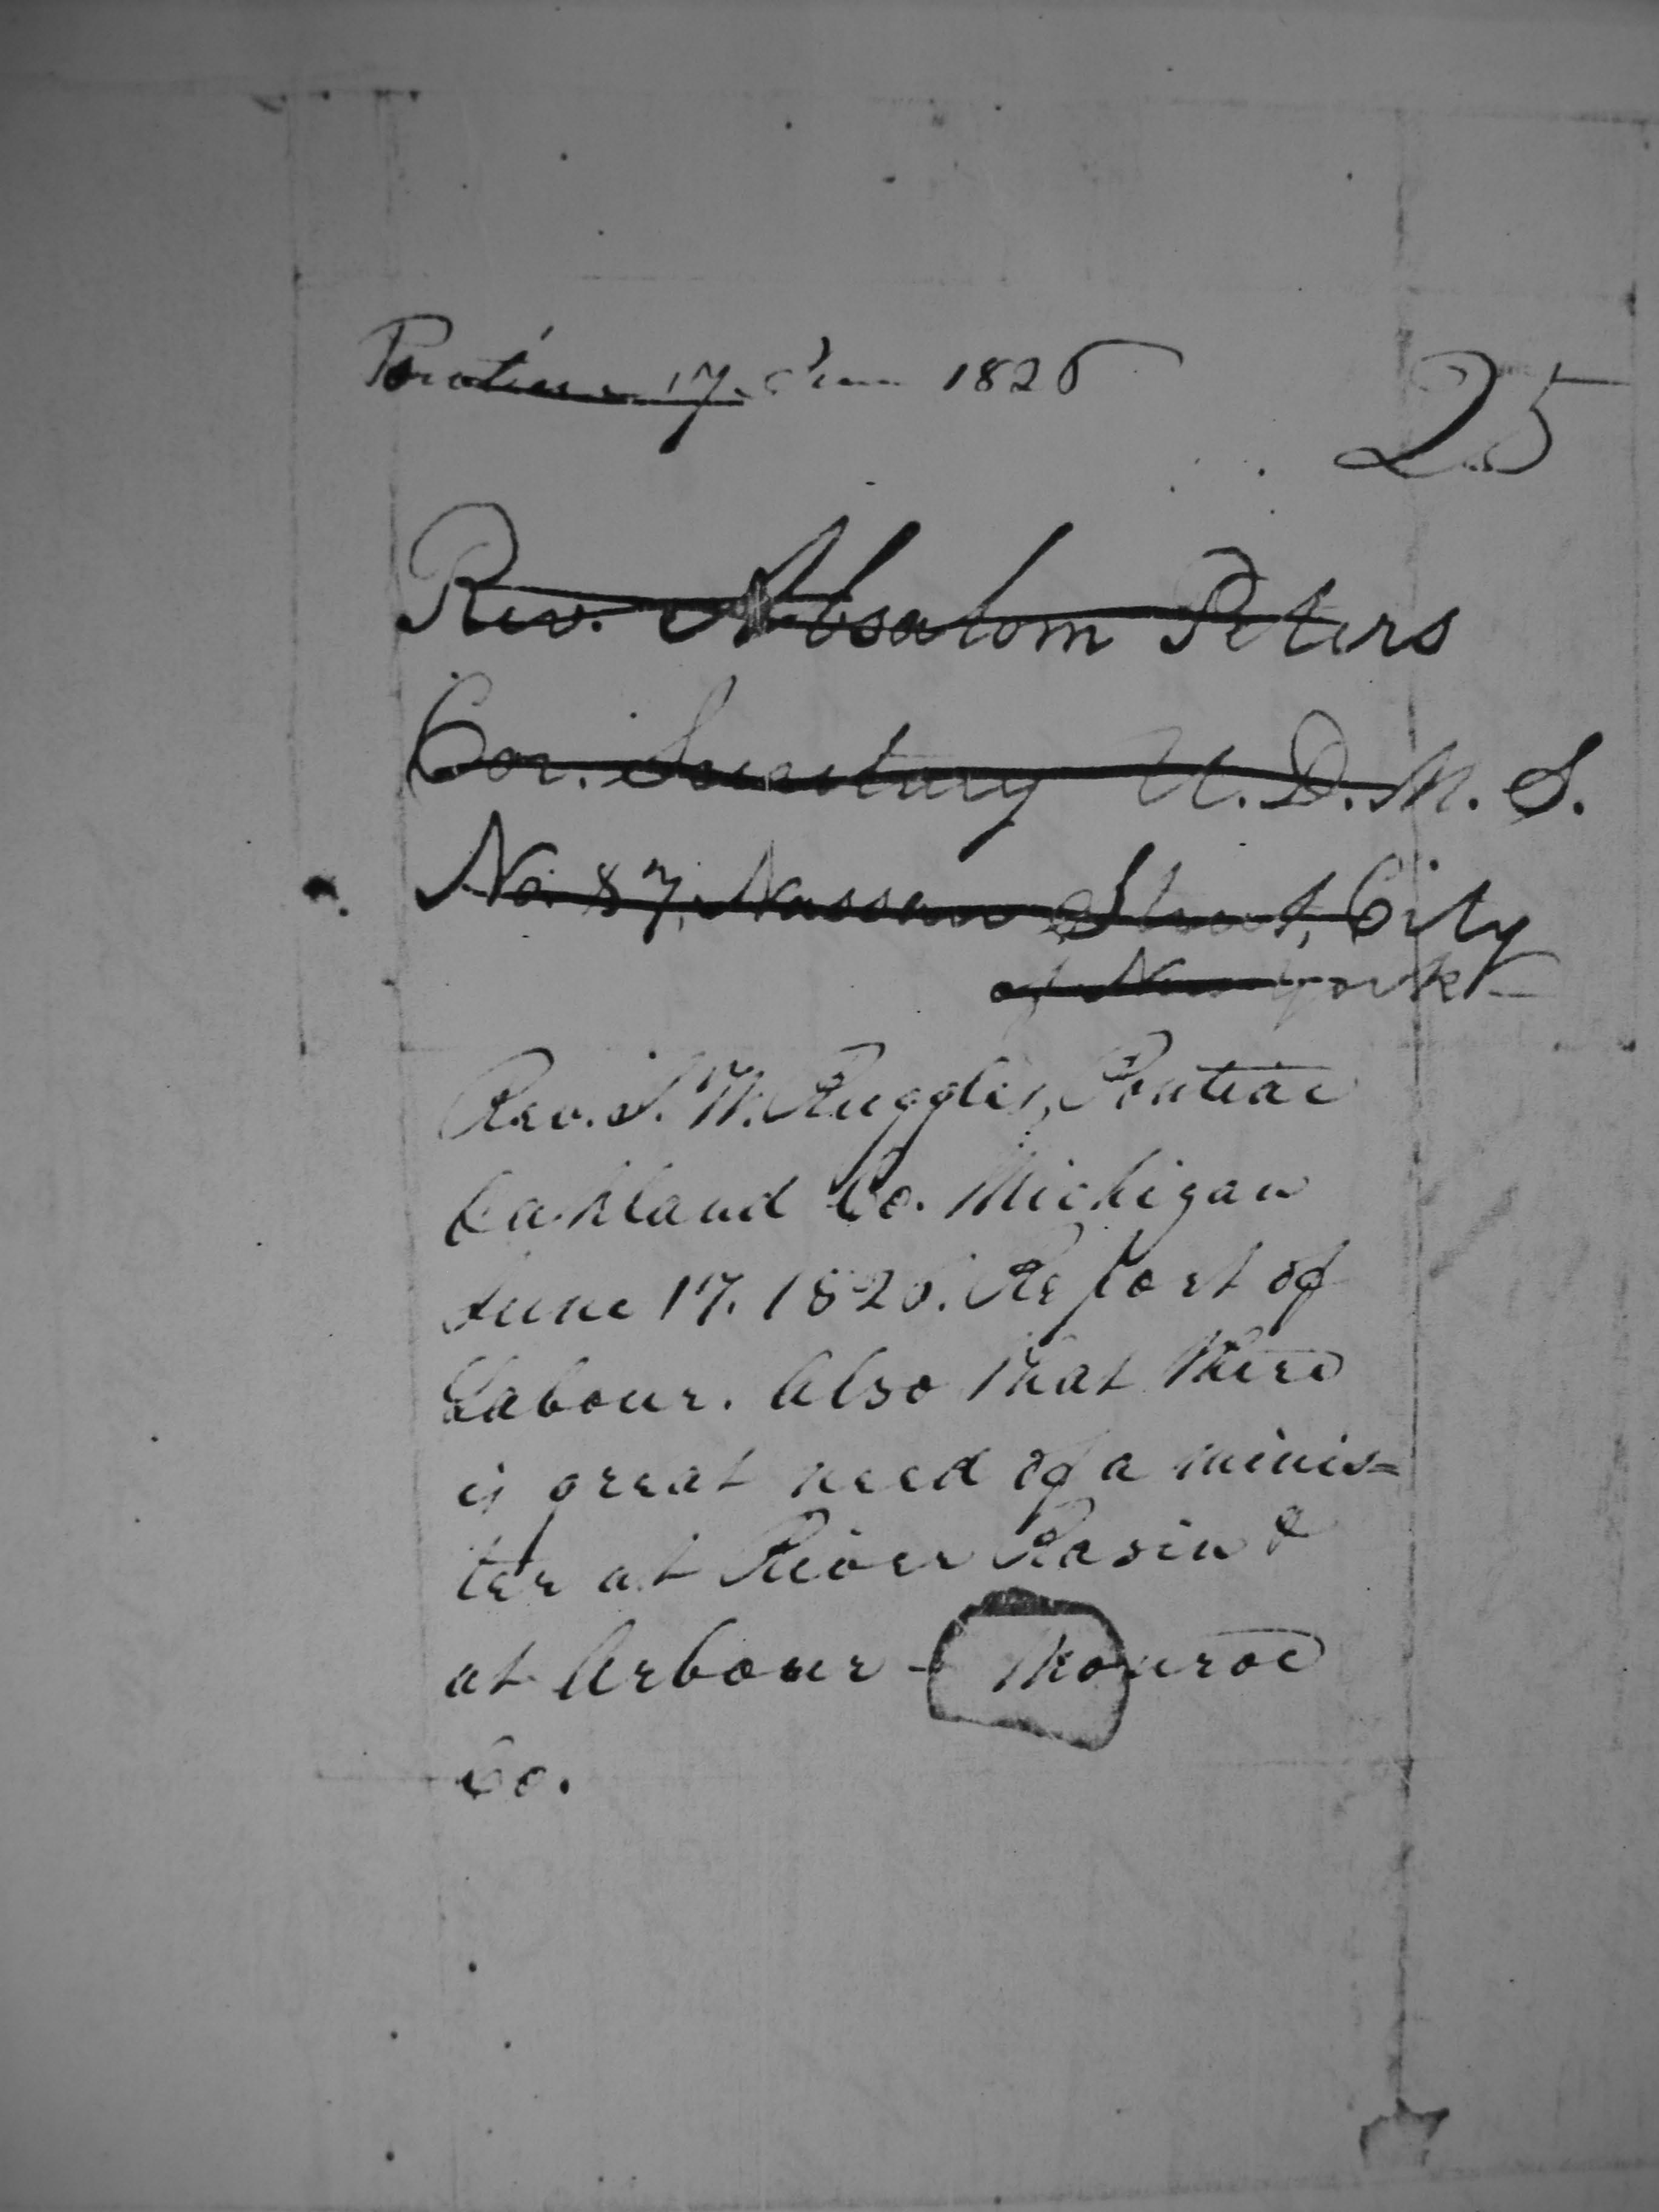 Pontiac 17. June 1826
25
Rev. Absalom Peters
Cor. Secretary U. D. M. S.
No. 87, Nassau Street, City
of New York
Rev. I. W. Ruggles, Pontiac
Oakland Co. Michigan
June 17. 1826. Report of
Labour. Also that there
is great need of a minis=
ter at River Rasin &
at Arbour - Monroe
Co.